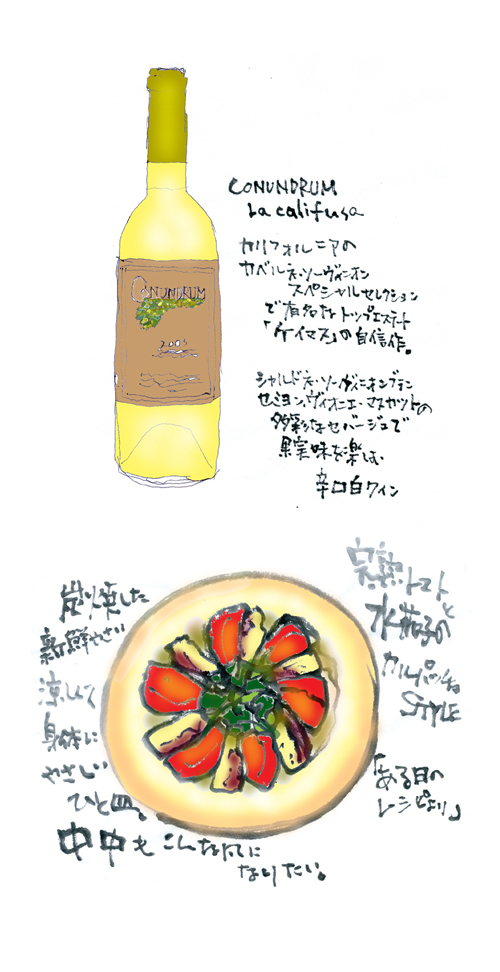 CONUNDRUM
2003
CONUNDRUM
La califusa
カリフォルニアの
カベルネ・ソーヴィニオン
スペシャルセレクション
で有名なトップエステート
「ケイマス」の自信作。
シャルドネ・ソーヴィニオンブラン
セミヨン、ヴィオニエ・マスカットの
多彩なセパージュで
果実味を楽しむ
辛口白ワイン
完熟トマト
と
水茄子の
カルパッチョ
STYLE
「ある日の
レシピより」
炭焼した
新鮮やさい
涼しくて
身体に
やさしい
ひと皿。
中中も こんな
なりたい。